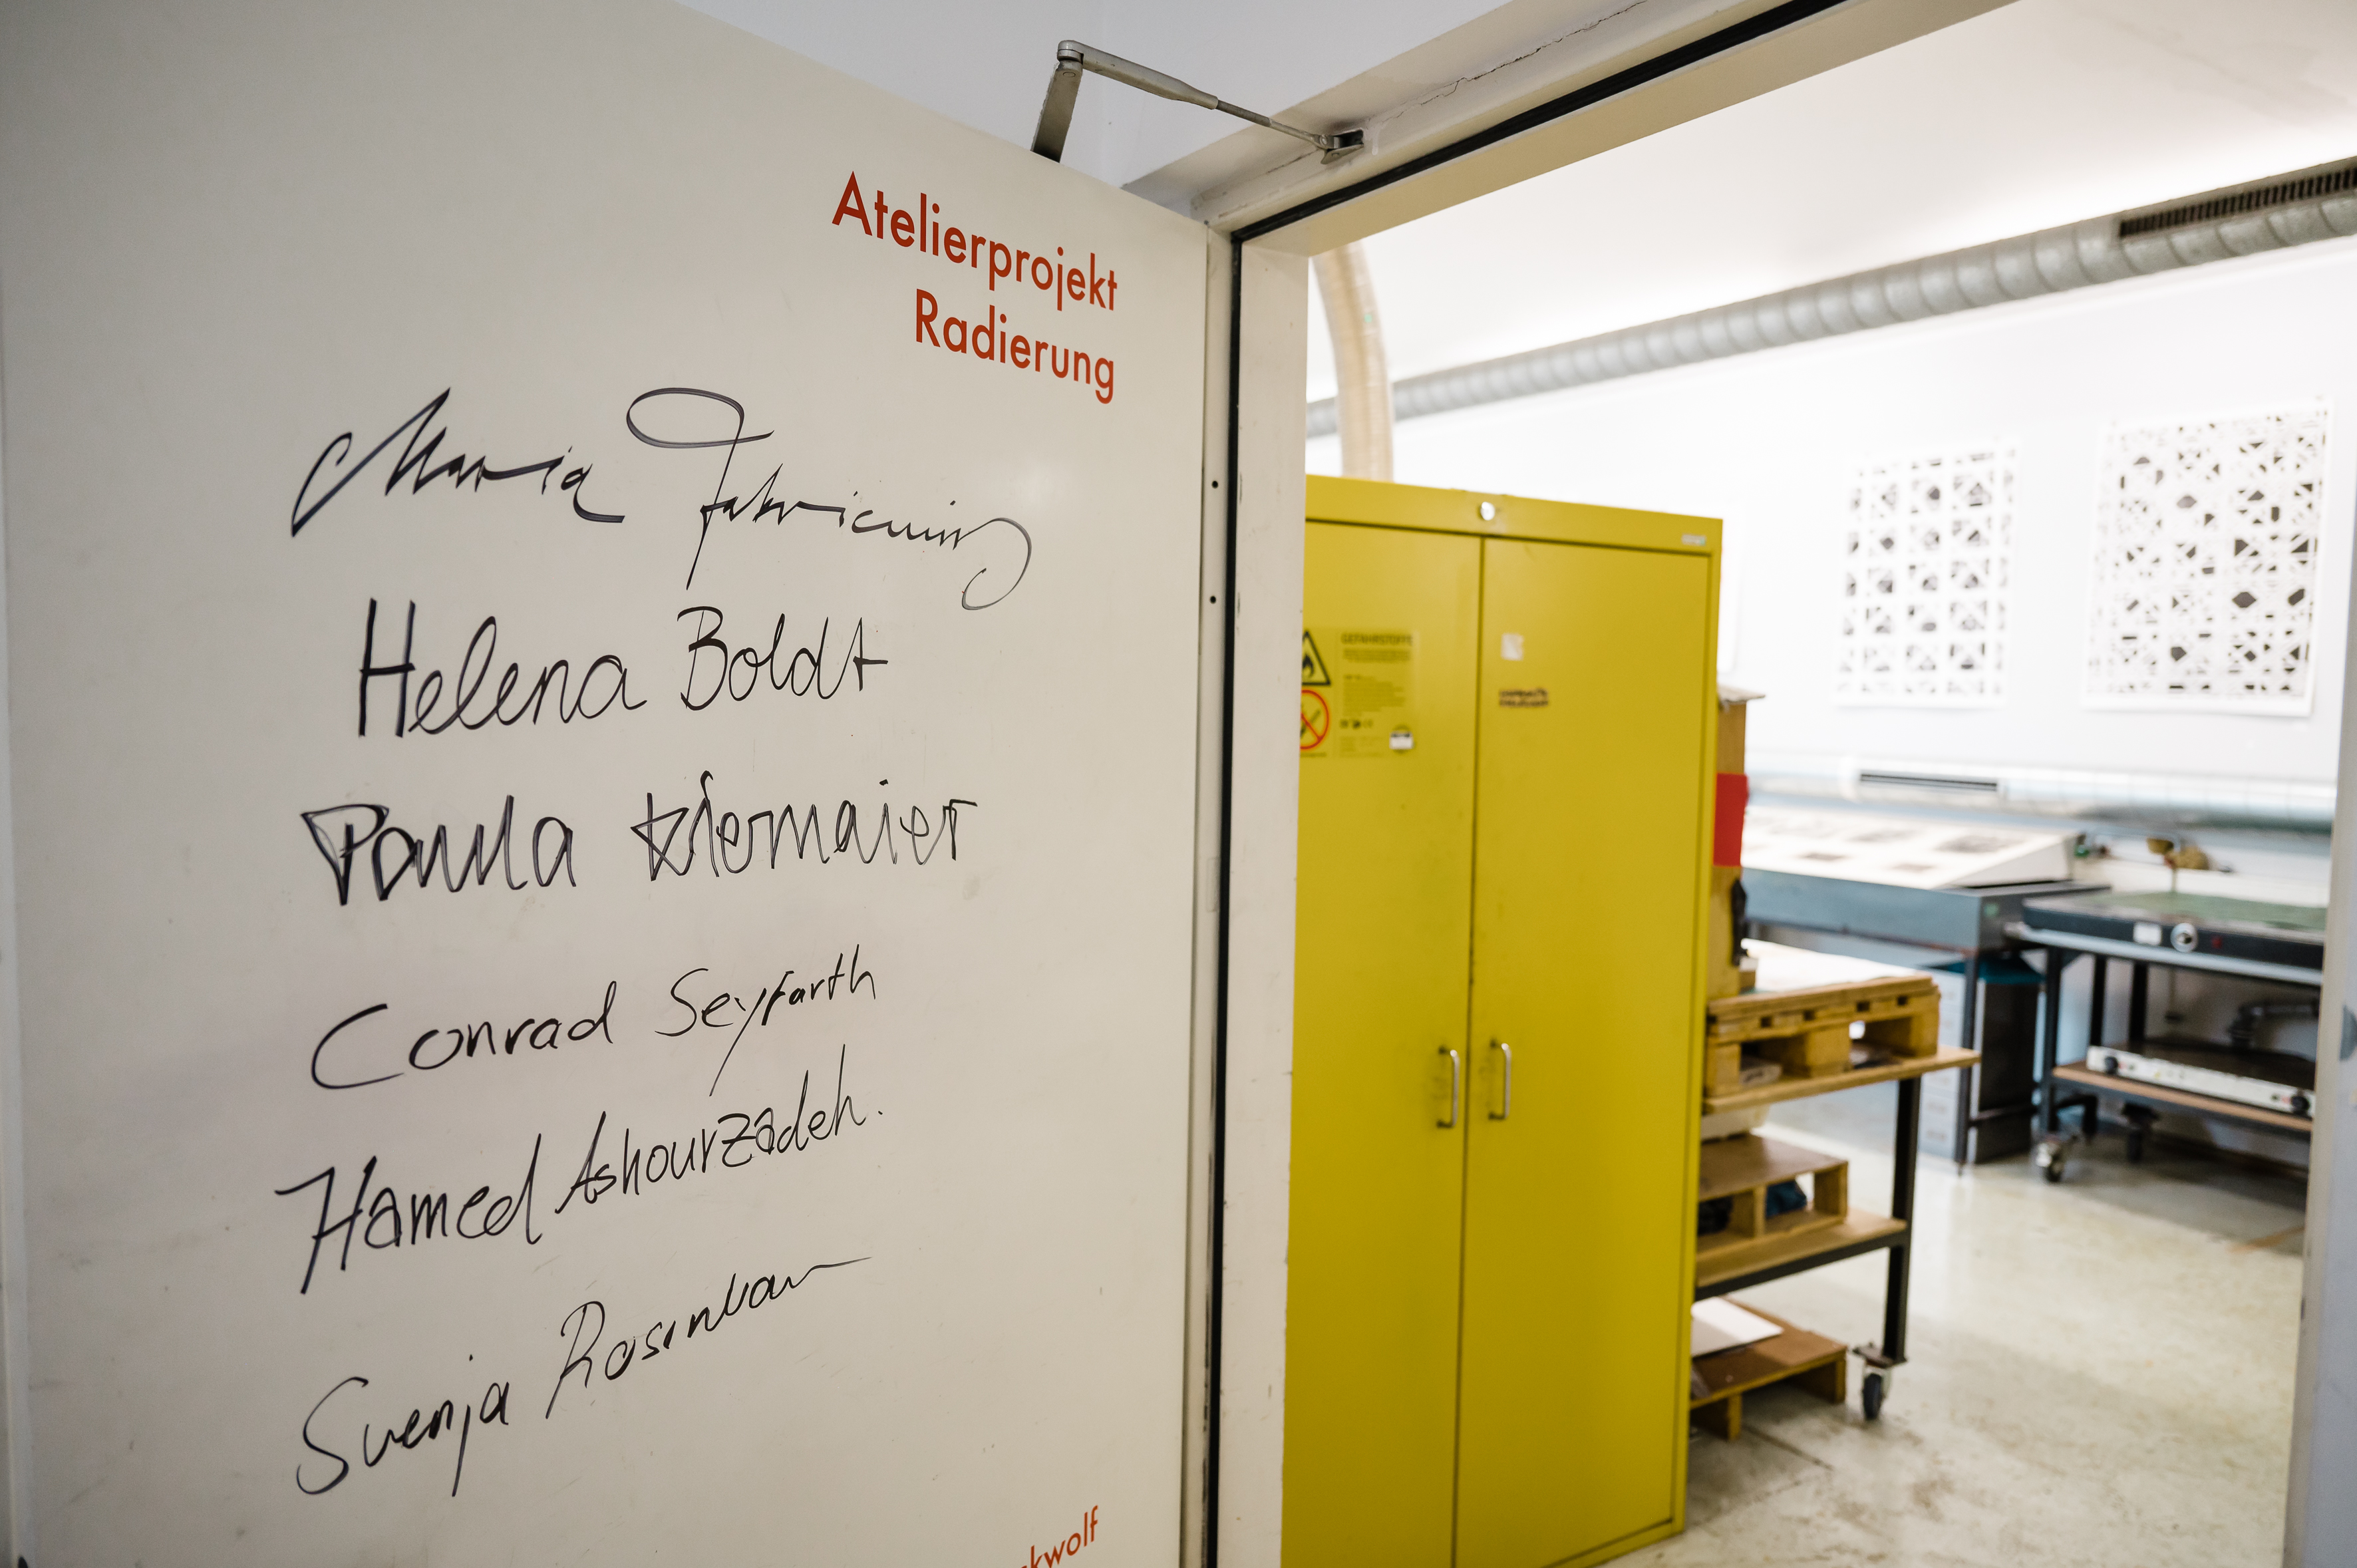 Atelierprojekt
Radierung
Maria Fabricius
Helena Boldt
Paula
Conrad Seyfarth
Hamed Ashourzadeh.
Svenja
kwolf
GEFAHRSTOFFE